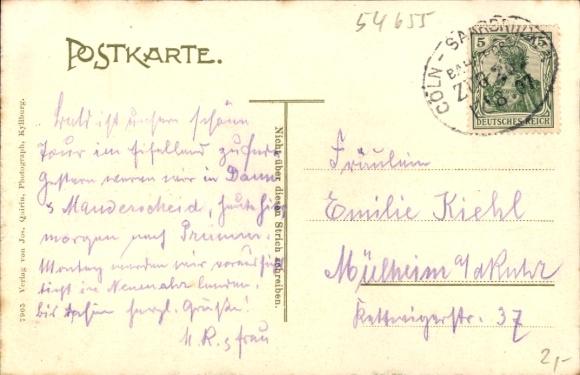 54655
POSTKARTE.
CÖLN - SAARBRÜCKEN
BAHNPOST
ZUG
07
5
DEUTSCHES REICH
Bald ist unsere schöne
Tour im Eifelland zu Ende
Gestern waren wir in Daun
& Manderscheid, heute hier
morgen nach Prümm.
Montag werden wir voraussich
tigst in Neuenahr landen.
bis dahin herzl. Grüße!
M. R. & Frau
Nichts über diesen Strich schreiben.
Fräulein
Emilie Kiehl
Mülheim a/d Ruhr
Kettwigerstr. 37
7905 Verlag von Jos. Quirin, Photograph, Kyllburg.
2,-